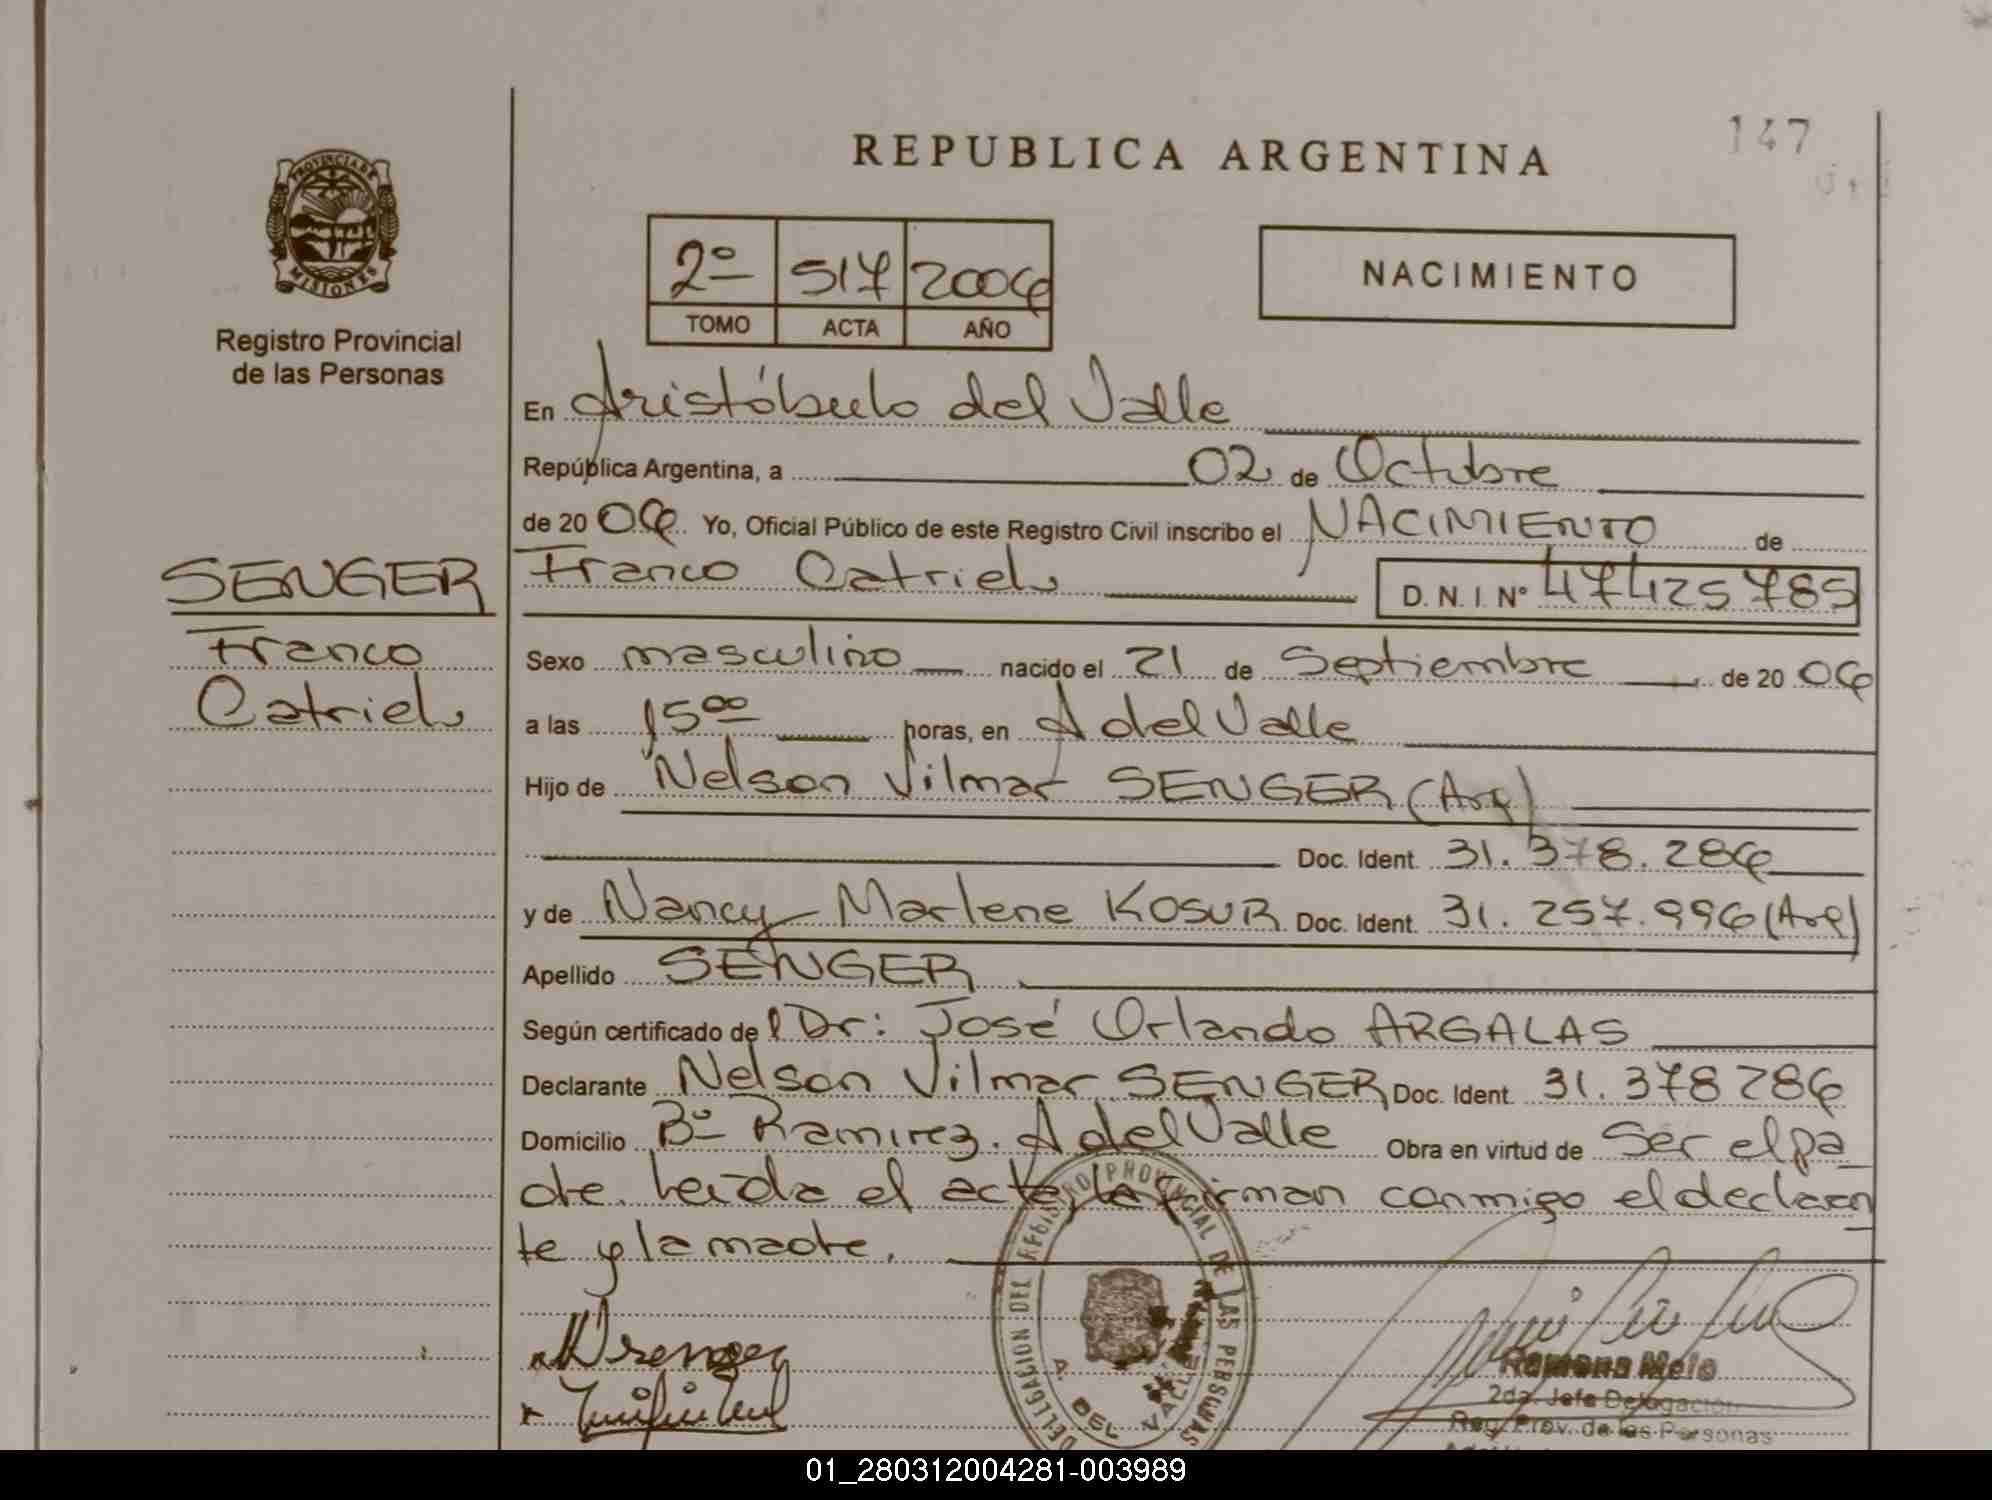 REPUBLICA ARGENTINA
147
PROVINCIA DE
MISIONES
Registro Provincial
de las Personas
2º 517 2006
TOMO ACTA AÑO
NACIMIENTO
En Aristóbulo del Valle
República Argentina, a 02 de Octubre
de 20 06 Yo, Oficial Público de este Registro Civil inscribo el NACIMIENTO de
SENGER
Franco Catriel
D. N. I. Nº 47425785
Franco
Catriel
Sexo masculino nacido el 21 de Septiembre de 20 06
a las 15 00 horas, en A del Valle
Hijo de Nelson Vilmar SENGER (Arg)
Doc. Ident. 31.378.286
y de Nancy Marlene KOSUR Doc. Ident. 31.257.996 (Arg)
Apellido SENGER
Según certificado de l Dr: José Orlando ARGALAS
Declarante Nelson Vilmar SENGER Doc. Ident. 31.378286
Domicilio Bº Ramirez. A del Valle Obra en virtud de ser el pa
dre. Leída el acta, la firman conmigo el declaran
te y la madre.
DELEGACION DEL REGISTRO PROVINCIAL DE LAS PERSONAS
A. DEL VALLE
Ramona Melo
2da. Jefe Delegación
Reg. Prov. de las Personas
01_280312004281-003989